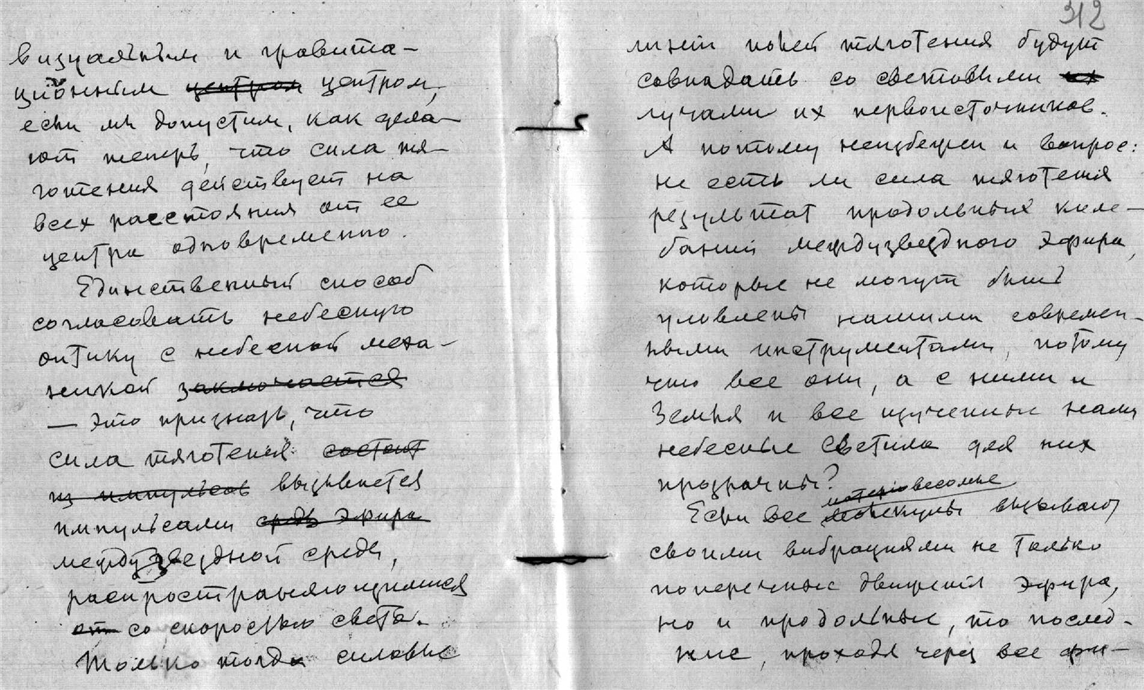 визуальным и гравита-
ционным центром центром,
если мы допустим, как дела-
ют теперь, что сила тя-
готения действует на
всех расстояния от ее
центра одновременно.
Единственный способ
согласовать небесную
оптику с небесной меха-
никой заключается
— это признать, что
сила тяготения состоит
из импульсов вызывается
импульсами среды эфира
междузвездной среды,
распространяющимися
от со скоростью света.
Только тогда силовые
312
линии полей тяготения будут
совпадать со световыми их
лучами их первоисточников.
А потому неизбежен и вопрос:
не есть ли сила тяготения
результат продольных коле-
баний междузвездного эфира,
которые не могут быть
уловлены нашими современ-
ными инструментами, потому
что все они, а с ними и
Земля и все изученные нами
небесные светила для них
прозрачны?
Если все молекулы вызывают
своими вибрациями не только
поперечные движения эфира,
но и продольные, то послед-
ние, проходя через все фи-